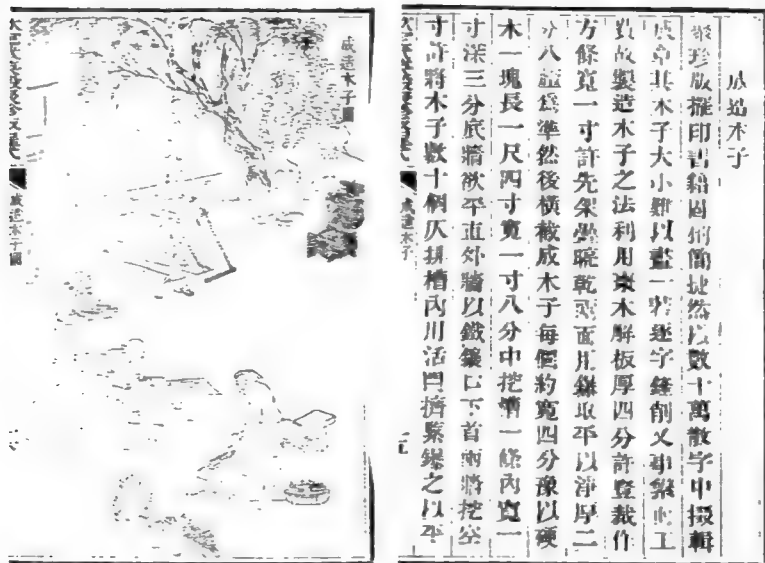 成造木子
聚珍版擺印書籍固稱簡捷然以數十萬散字中掇輯
成章其木子大小難以畫一若逐字削又事繁工
費故製造木子之法利用棗木解板厚四分許豎裁作
方條寬一寸許先架疊晾乾兩面用取平以淨厚二
分八釐為準然後橫截成木子每個約寬四分豫以硬
木一塊長一尺四寸寬一寸八分中挖槽一條內寬一
寸深三分底牆欲平直外牆以鐵鑲口下首兩牆挖空
寸許將木子數十個仄排槽內用活閂擠緊鎊之以平
成造木子
成造木子圖
成造木子圖